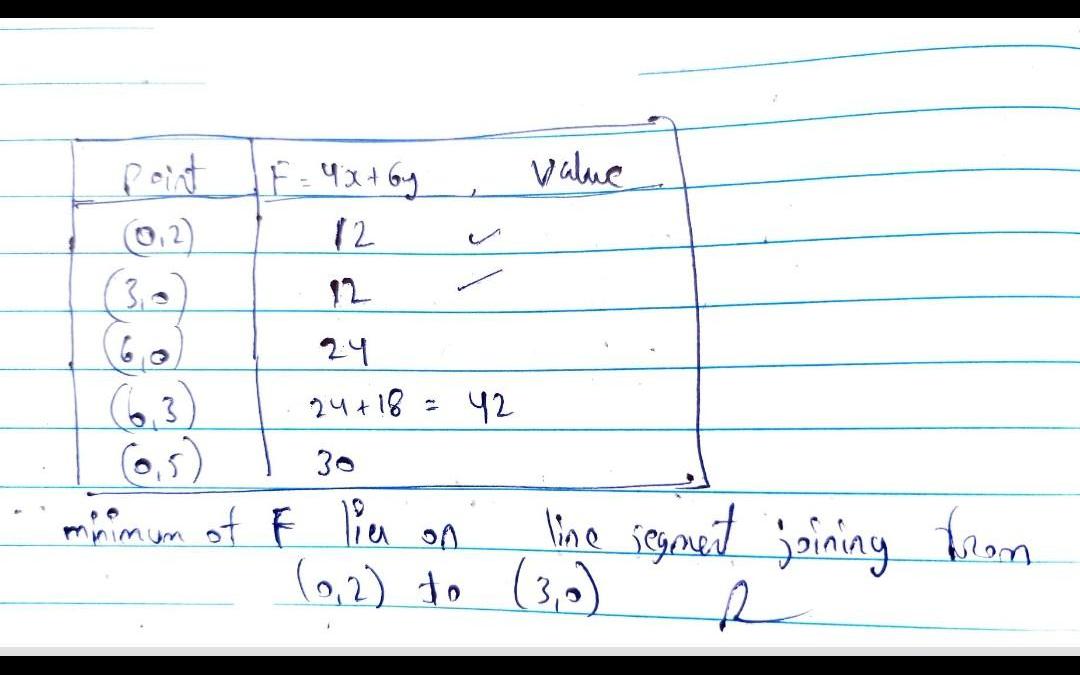 Point F = 4x+6y , Value
(0,2) 12 ✓
(3,0) 12 ✓
(6,0) 24
(6,3) 24+18 = 42
(0,5) 30
minimum of F lies on line segment joining from
(0,2) to (3,0)